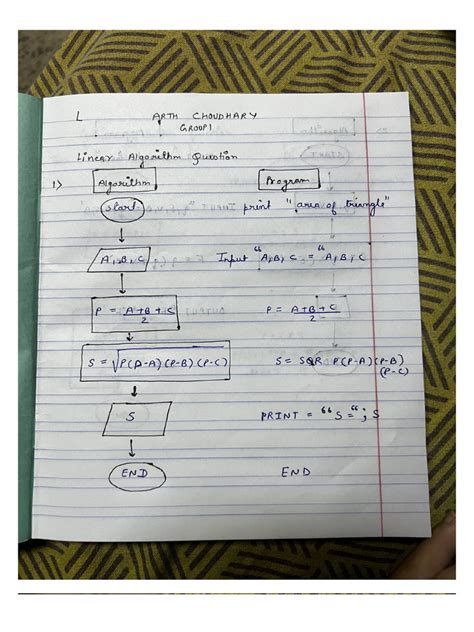 L
ARTH CHOUDHARY
GROUP1
Linear Algorithm Question
1) Algorithm Program
Start print "area of triangle"
A, B, C Input "A, B, C = "A, B, C
P = A+B+C/2 P = A+B+C/2
S = √P(P-A)(P-B)(P-C) S = SQR P(P-A)(P-B)
(P-C)
S PRINT = "S="; S
END END